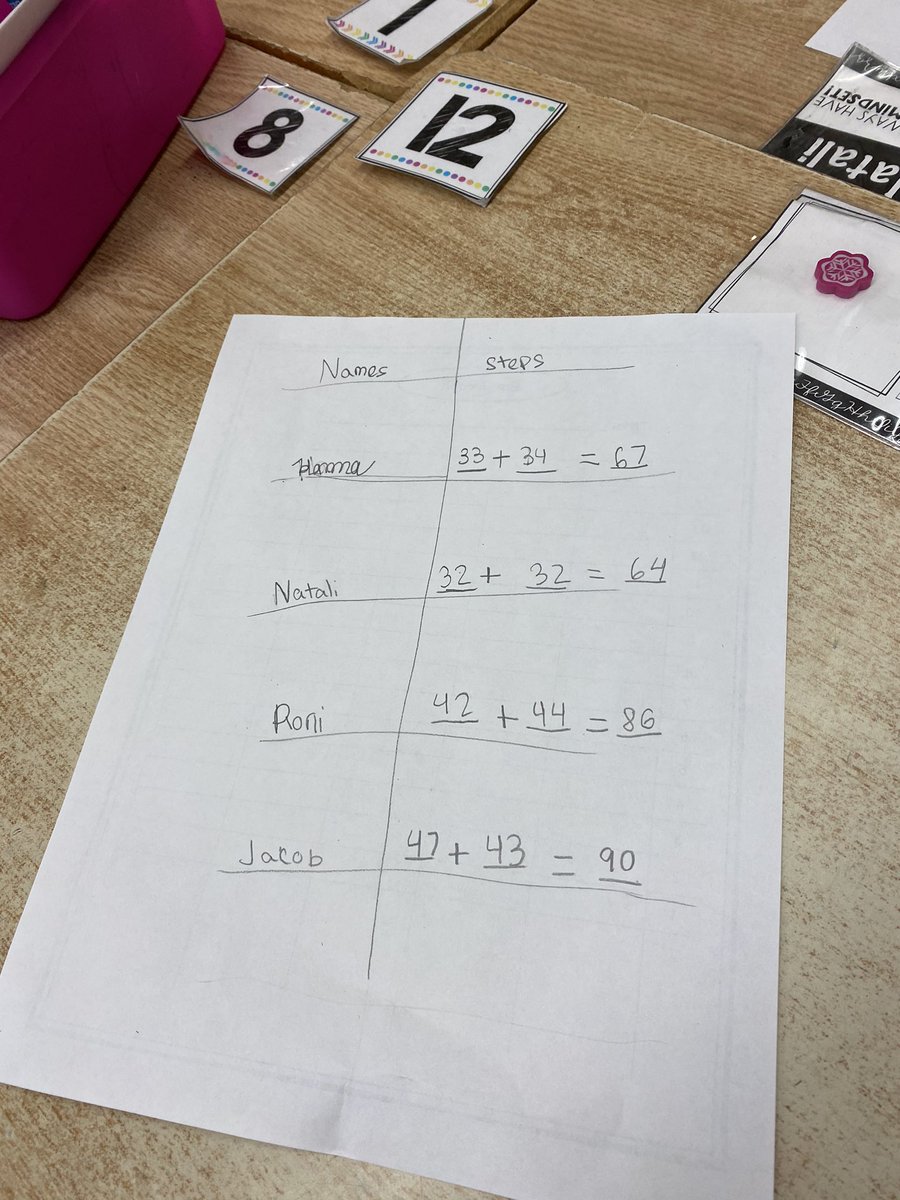 1
8
12
WAYS HAVE
MINDSET!
atali
Names steps
33 + 34 = 67
Natali 32 + 32 = 64
Roni 42 + 44 = 86
Jacob 47 + 43 = 90